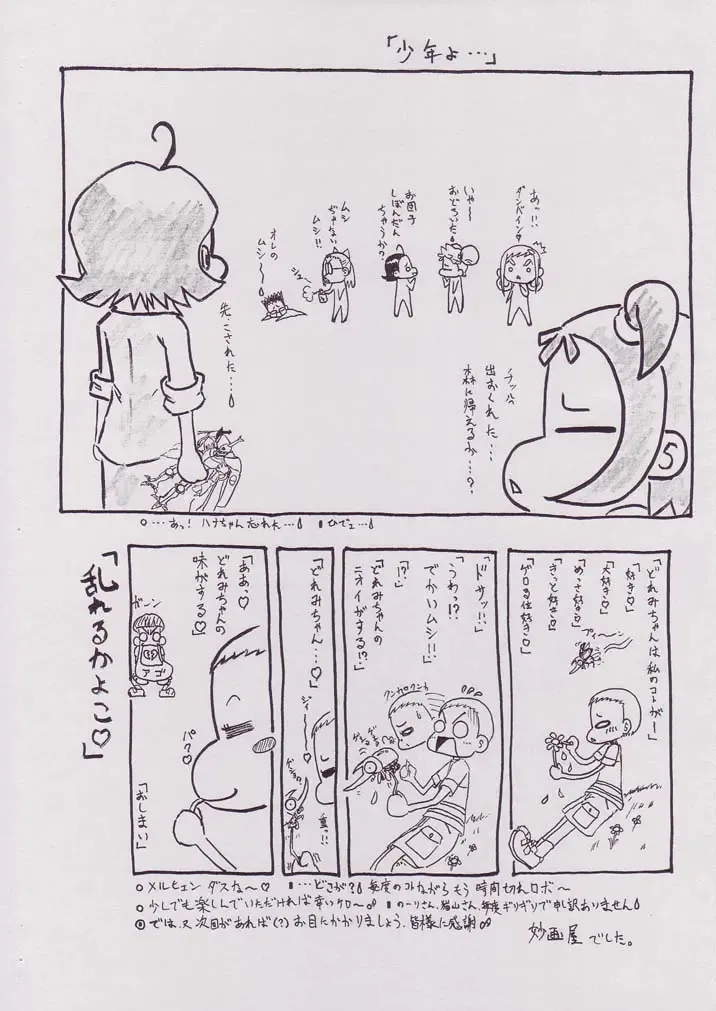 「少年よ…」
あっ!!
ダンバイン!?
いや〜
おどろいた
お団子
しぼんだん
ちゃうか?
ムシ
ぢゃない
ムシ!!
オレの
ムシ〜〜
先こされた…
出おくれた…
森に帰えるか…?
○…あっ! ハナちゃん忘れた… ひでェ…
「どれみちゃんは私のコトがー」
「好き♡」
「大好き♡」
「めっさ好き♡」
「きっと好き♡」
「ゲロる位好き♡」
プィ〜〜ン
「ドサッ!!」
「うわっ!?
でかいムシ!!」
「!?」
「どれみちゃんの
ニオイがする!?」
クンカクンカ
「どれみちゃん…♡」
ジィーー
重っ!!
「ああっ♡
どれみちゃんの
味がする♡」
ガーン
アゴ
パクっ♡
「おしまい」
「乱れるかよこ♡」
○メルヒェン ダスな〜♡ …どこが? 毎度のコトながらもう時間切れロボ〜
○少しでも楽しんでいただければ幸いケロ〜 のーりさん、猫山さん、毎度ギリギリで申訳ありません
◎では、又次回があれば(?)お目にかかりましょう、皆様に感謝
妙画屋でした。